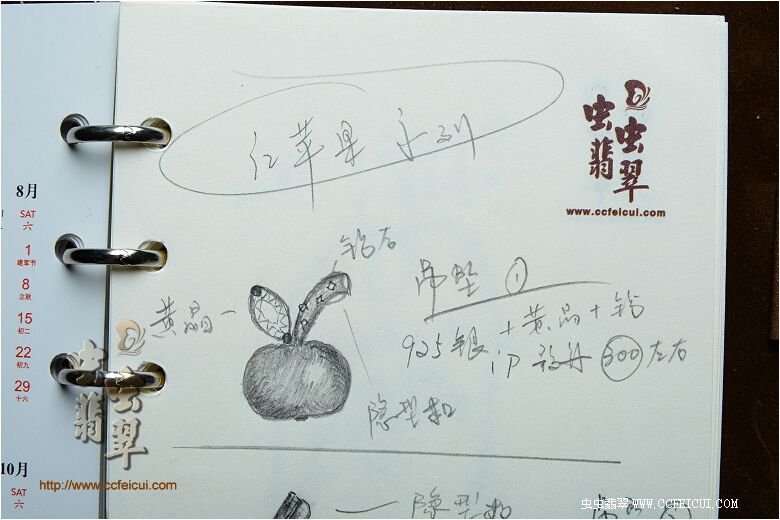 红苹果系列
虫虫翡翠
www.ccfeicui.com
8月
SAT
六
1
建军节
8
立秋
15
初二
22
初九
29
十六
10月
SAT
六
钻石
黄晶
吊坠 ①
925银+黄晶+钻
300左右
隐型扣
隐型扣
虫虫翡翠
http://www.ccfeicui.com
虫虫翡翠 WWW.CCFEICUI.COM